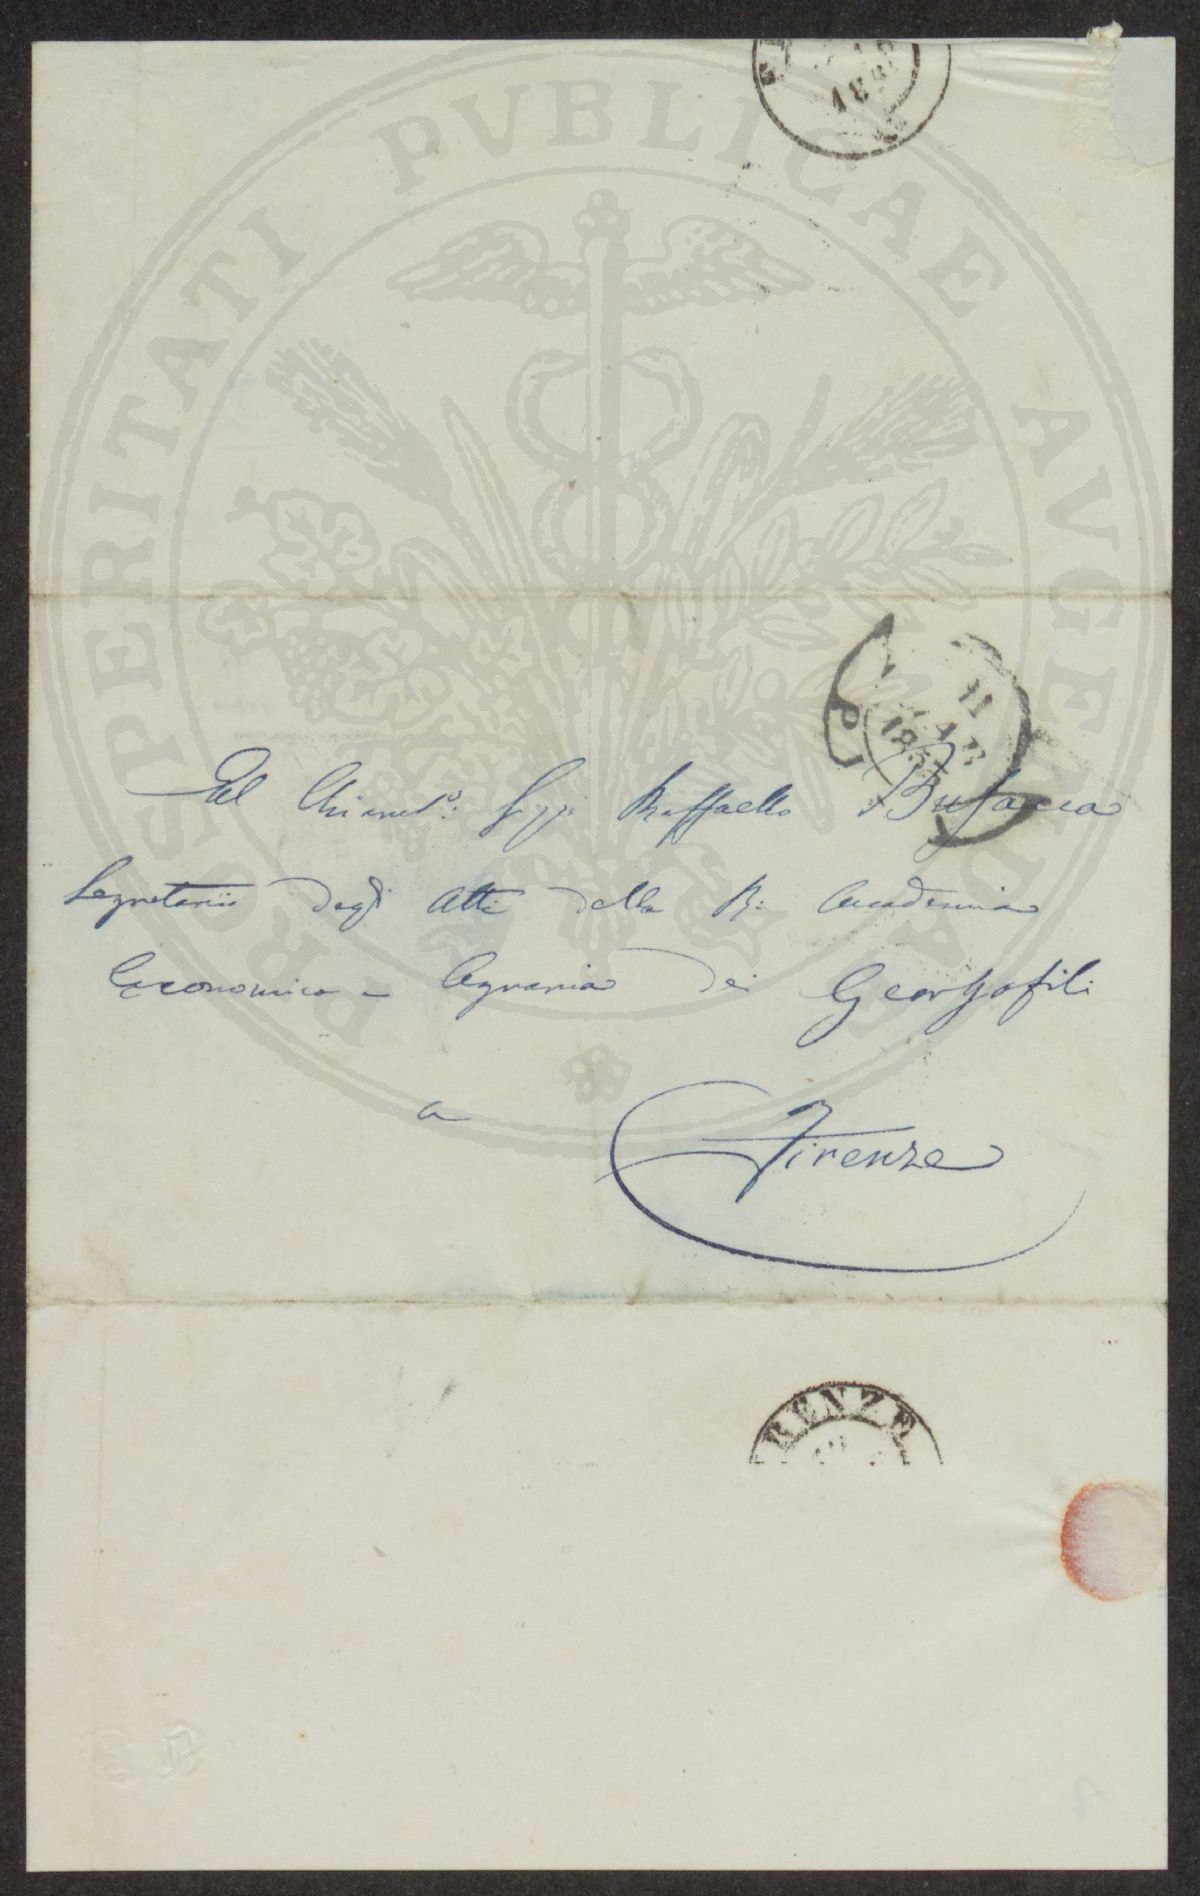 1855
PROSPERITATI PVBLICAE AVGENDAE
11
PI
185
Al Chiariss.º Sigg. Raffaello Busacca
Segretario degli Atti della R: Accademia
Economico = Agraria dei Georgofili
a Firenze
RENZE
12